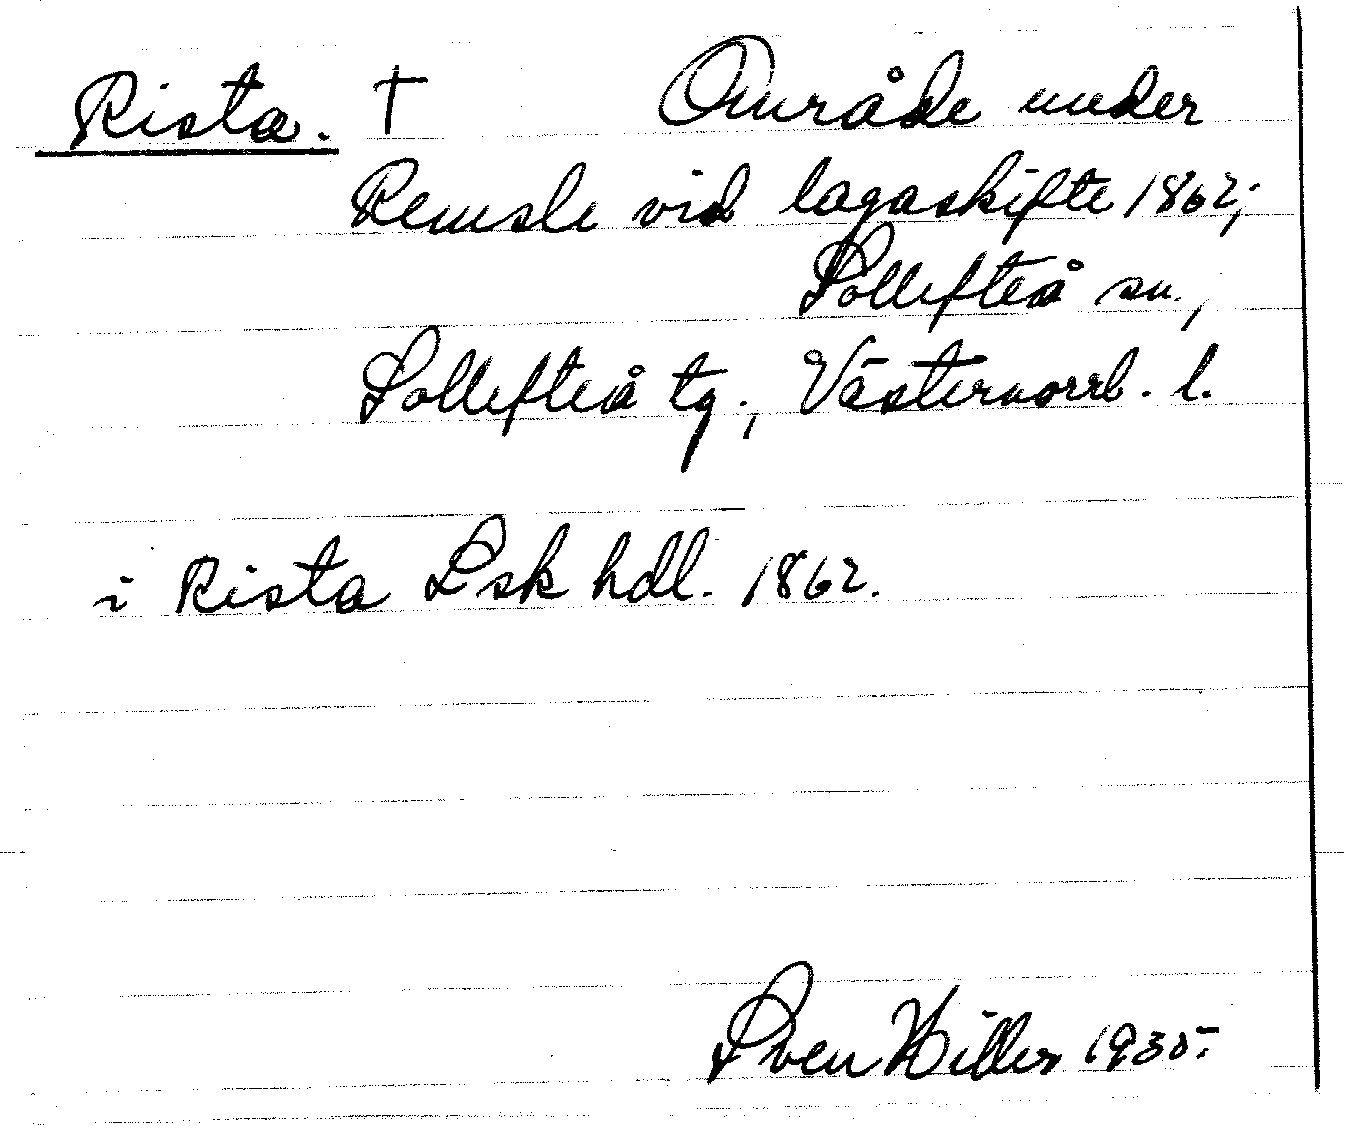 Rista. † Område under
Remsle vid lagaskifte 1862;
Sollefteå sn.,
Sollefteå tg., Västernorrl. l.
i Rista Lsk hdl. 1862.
Sven Hiller 1935.